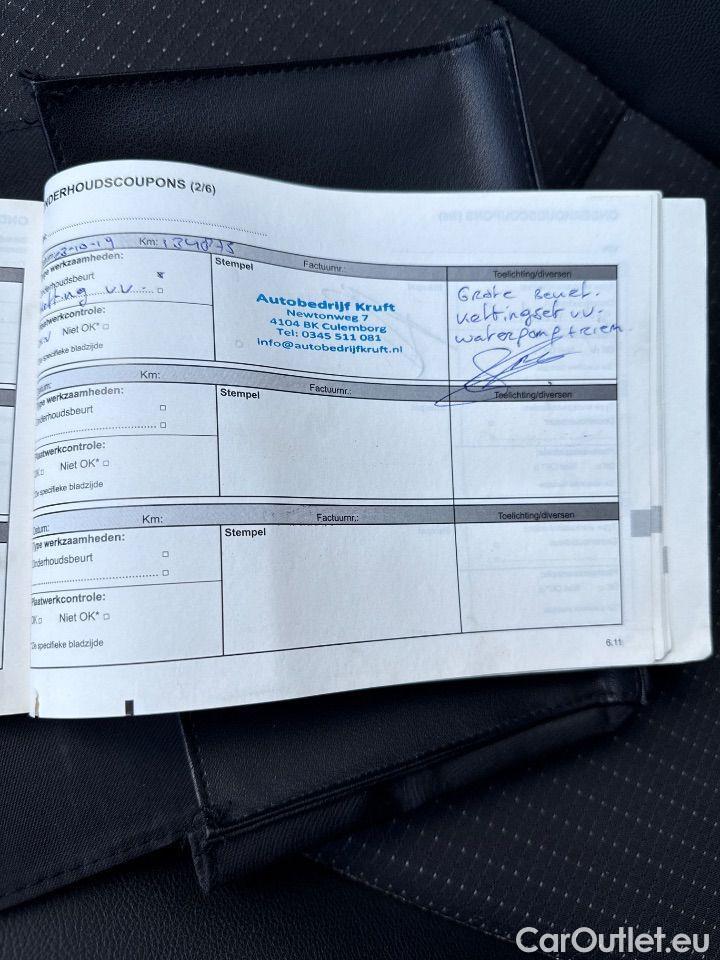 NDERHOUDSCOUPONS (2/6)
23-10-19 Km: 134875
Type werkzaamheden:
nderhoudsbeurt
ketting v.v.
Plaatwerkcontrole:
Niet OK*
De specifieke bladzijde
Stempel
Factuurnr.:
Autobedrijf Kruft
Newtonweg 7
4104 BK Culemborg
Tel: 0345 511 081
info@autobedrijfkruft.nl
Toelichting/diversen
Grote Beurt.
kettingset vv.
waterpomp + riem.
Datum: Km:
Type werkzaamheden:
Onderhoudsbeurt
Plaatwerkcontrole:
OK Niet OK*
De specifieke bladzijde
Stempel
Factuurnr.:
Toelichting/diversen
Datum: Km:
Type werkzaamheden:
Onderhoudsbeurt
Plaatwerkcontrole:
OK Niet OK*
De specifieke bladzijde
Stempel
Factuurnr.:
Toelichting/diversen
6.11
CarOutlet.eu